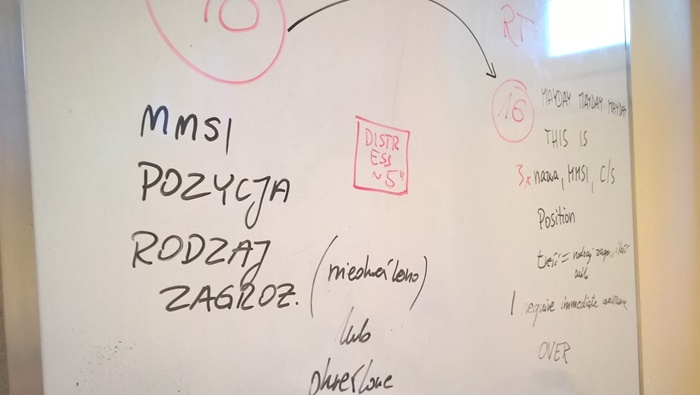 70
MMSI
POZYCJA
RODZAJ
ZAGROŻ.
(nieokreślono)
lub
określone
DISTR
ESS
~5"
RT
16
MAYDAY MAYDAY MAYDAY
THIS IS
3x nazwa, MMSI, C/S
Position
treść = rodzaj zagr., ilość
osób
I require immediate assistance
OVER